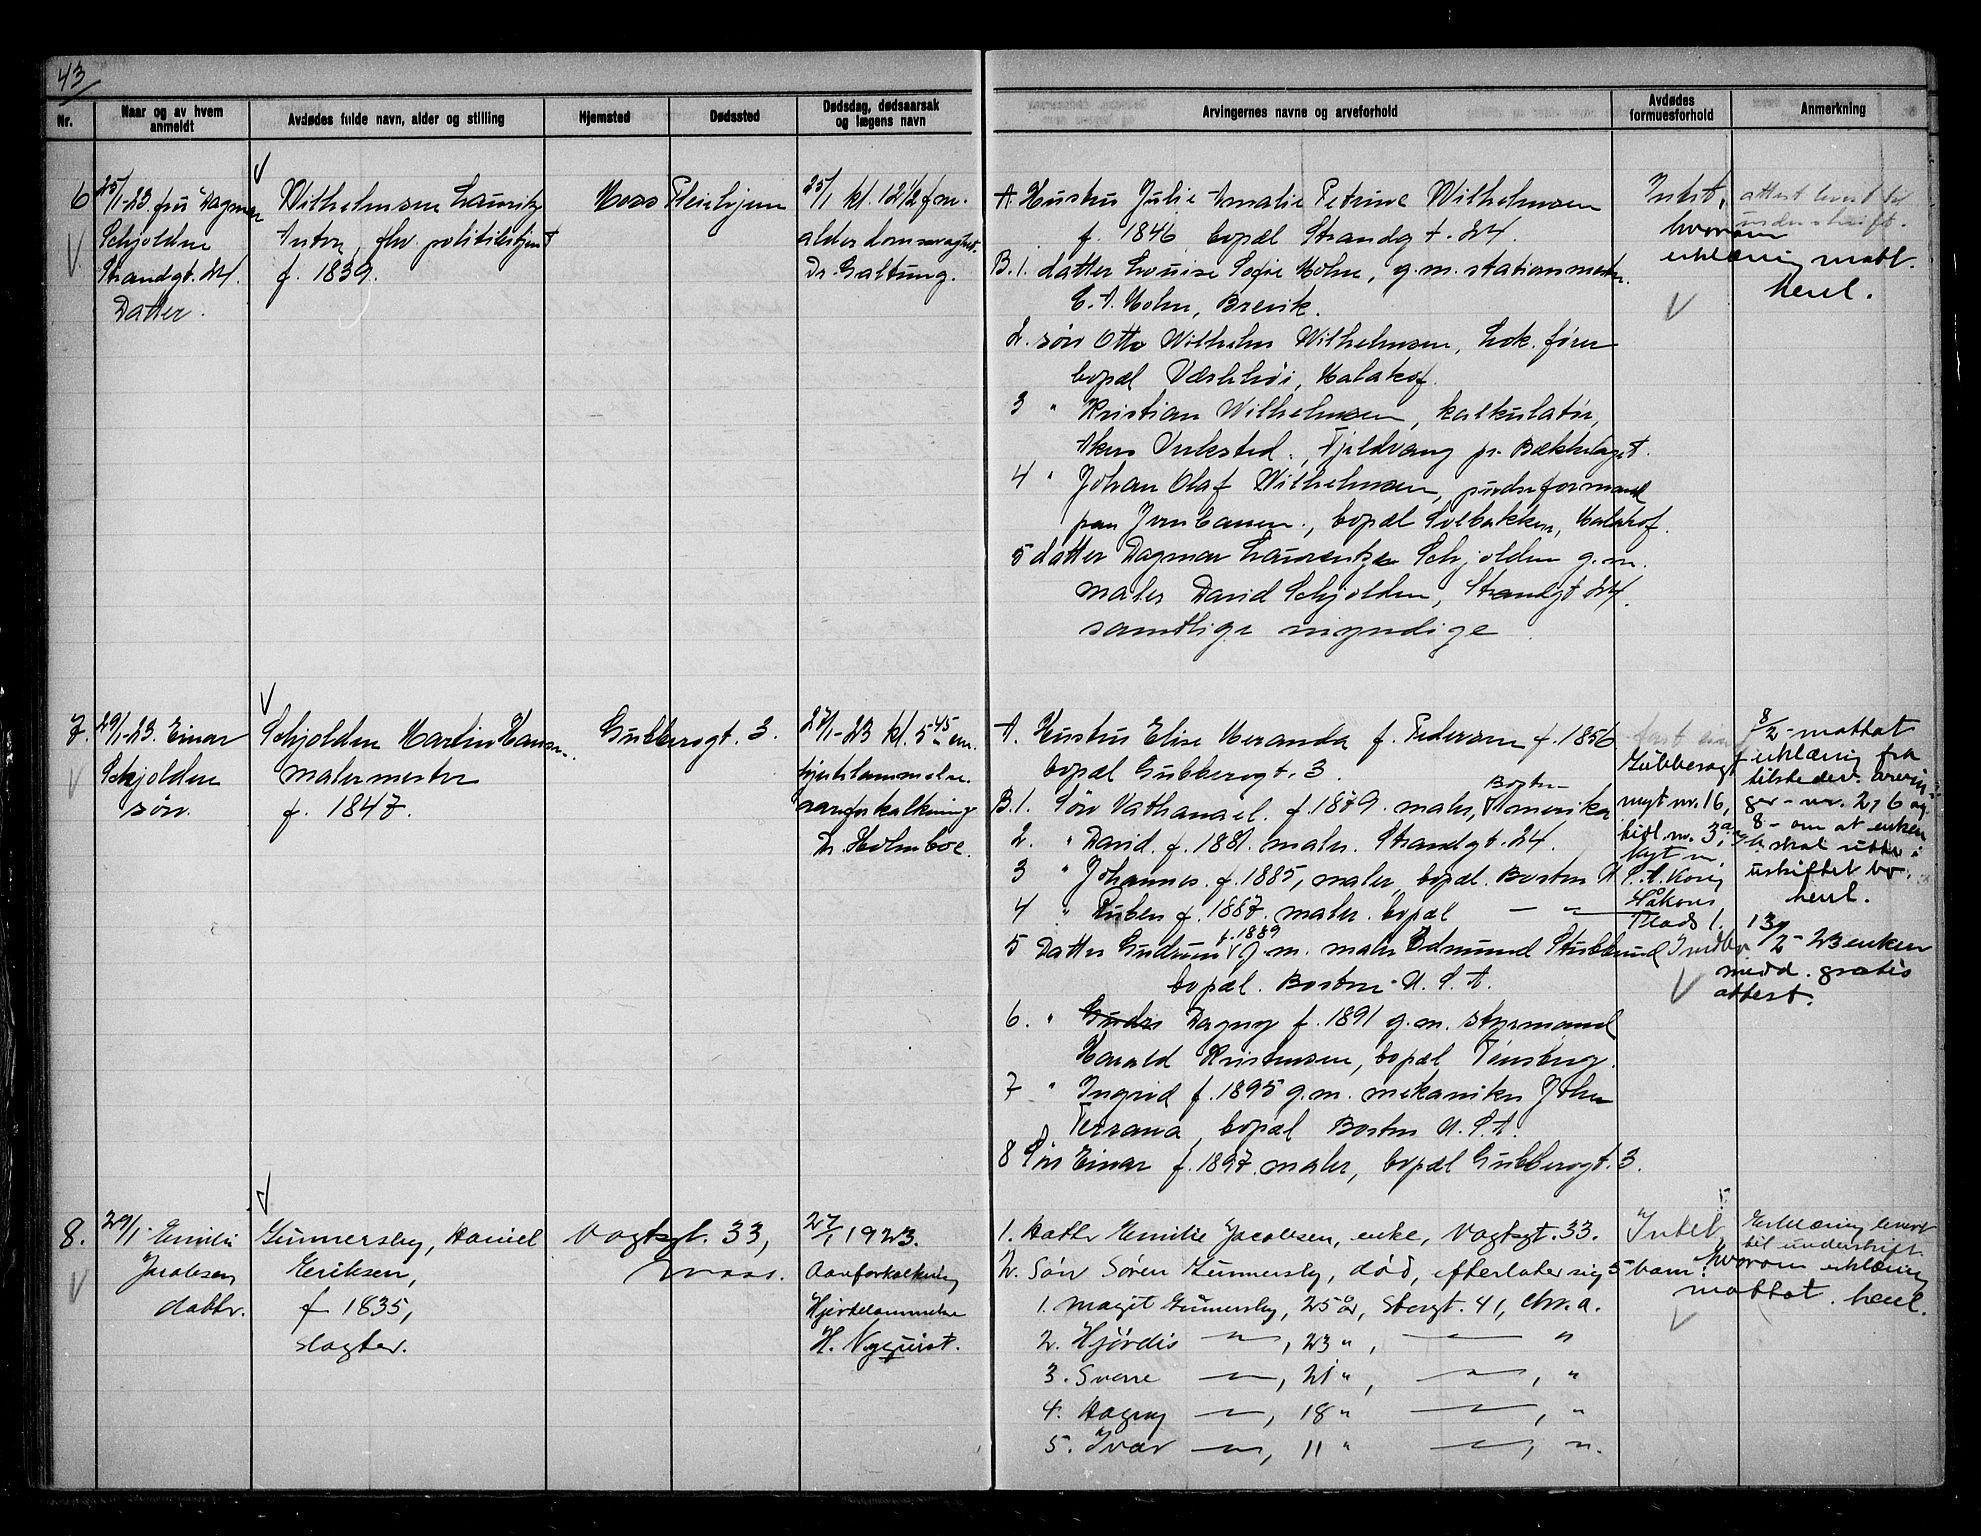 43
Nr.
Naar og av hvem anmeldt
Avdødes fulde navn, alder og stilling
Hjemsted
Dødssted
Dødsdag, dødsaarsak og lægens navn
Arvingernes navne og arveforhold
Avdødes formuesforhold
Anmerkning
6
25/1-23. fru Dagmar
Schjolden
Strandgt. 24.
Datter.
Wilhelmsen Lauritz
Anton, fhv. politibetjent
f. 1839.
Moss Pleiehjem
25/1 kl. 12 1/2 fm.
alderdomssvaghet.
Dr Galtung.
A. Hustru Julie Amalie Petrine Wilhelmsen
f. 1846 bopæl Strandgt. 24.
B. 1. datter Louise Sofie Holm, g.m. stationsmester
C. A. Holm, Brevik.
2. søn Otto Wilhelm Wilhelmsen, Lok. fører
bopæl Værlehøi, Malakof.
3 " Kristian Wilhelmsen, kalkulatør,
Akers Verksted., Fjeldvang pr. Bækkelaget.
4 " Johan Olaf Wilhelmsen, pudseformand
paa Jernbanen., bopæl Solbakken, Malakof.
5 datter Dagmar Laurentze Schjolden g.m.
maler David Schjolden, Strandgt 24.
samtlige myndige
Intet,
hvorom
erklæring mott.
attest levert til
underskrift.
henl.
7.
29/1-23. Einar
Schjolden
søn.
Schjolden Martin Hansen.
malermester
f. 1847.
Gubberogt. 3.
27/1-23 kl. 5 45 em.
hjertelammelse.
aareforkalkning
Dr. Holmboe.
A. Hustru Elise Meranda f. Pedersen f. 1856
bopæl Gubberogt. 3.
B. 1. Søn Nathanael. f. 1879. maler, Boston Amerika
2. " David. f. 1881. maler. Strandgt. 24.
3 " Johannes. f. 1885, maler, bopæl. Boston
4 " Ruben f. 1887. maler. bopæl — " —
5 Datter Gudrun f. 1889 g.m. maler Edmund Stubberud
bopæl. Boston U. S. A.
6. " Dagny f. 1891 g.m. styrmand
Harald Kristensen, bopæl Tønsberg.
7 " Ingrid f. 1895 g.m. mekaniker John
Terrana, bopæl Boston U. S. A.
8 Søn Einar f. 1897. maler, bopæl Gubberogt. 3.
Gubberogt
mgt nr. 16,
Håkons
Plads 1.
8/2 - mottat
erklæring fra
tilstedev. arvin-
ger - nr. 2, 6 og
8 - om at enken
skal sitte i
uskiftet bo.
henl.
13/2 - 23 enken
medd. gratis
attest.
8.
29/1 - Emilie
Jacobsen
datter.
Gunnersby, Daniel
Eriksen,
f 1835,
slagter.
Vogtsgt. 33,
Moss.
27/1 1923.
Aareforkalkning
Hjertelammelse
H. Nyquist.
1. Datter Emilie Jacobsen, enke, Vogtsgt. 33.
2. Søn Søren Gunnersby, død, efterlater sig 5 barn:
1. Magit Gunnersby, 25 år, Storgt. 41, Chr.a.
2. Hjørdis — " —, 23 ", — " — "
3. Sverre — " —, 21 ", — " —, "
4. Dagny — " —, 18 " — " —, "
5. Ivar — " —, 11 " — " —, ".
Intet,
hvorom erklæring
mottat. henl.
Erklæring levert
til underskrift.